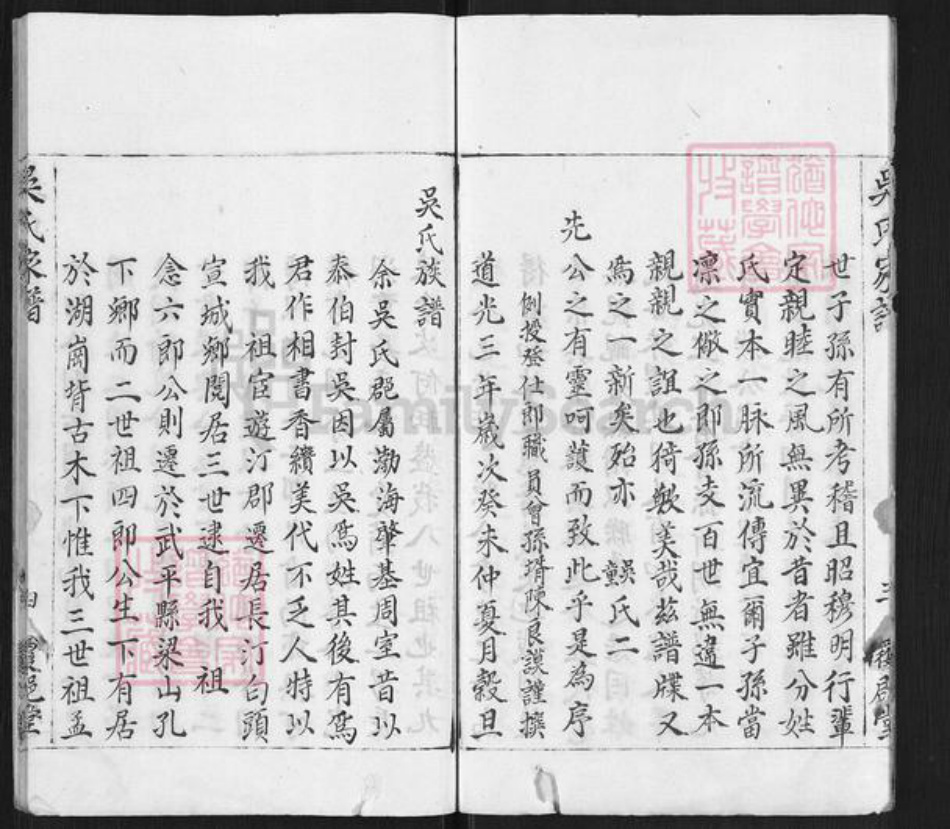 世子孫有所考稽且昭穆明行輩
定親睦之風無異於昔者雖分姓
氏實本一脉所流傳宜爾子孫當
凛之儆之即孫支百世無違一本
親親之誼也猗歟美哉兹譜牒又
爲之一新矣殆亦 吳氏二
先
公之有靈呵䕶而致此乎是為序
例授登仕郎職員曾孫壻陳良謨謹撰
道光三年嵗次癸未仲夏月糓旦
吳氏族譜
余吳氏郡屬渤海肇基周室昔以
泰伯封吳因以吳爲姓其後有爲
君作相書香纘美代不乏人特以
我 祖宦遊汀郡遷居長汀白頭
宣城鄉閱居三世逮自我 祖
念六郎公則遷於武平縣梁山孔
下鄉而二世祖四郎公生下有居
於湖崗背古木下惟我三世祖孟
吳氏家譜
四
吳氏家譜
三
FamilySearch